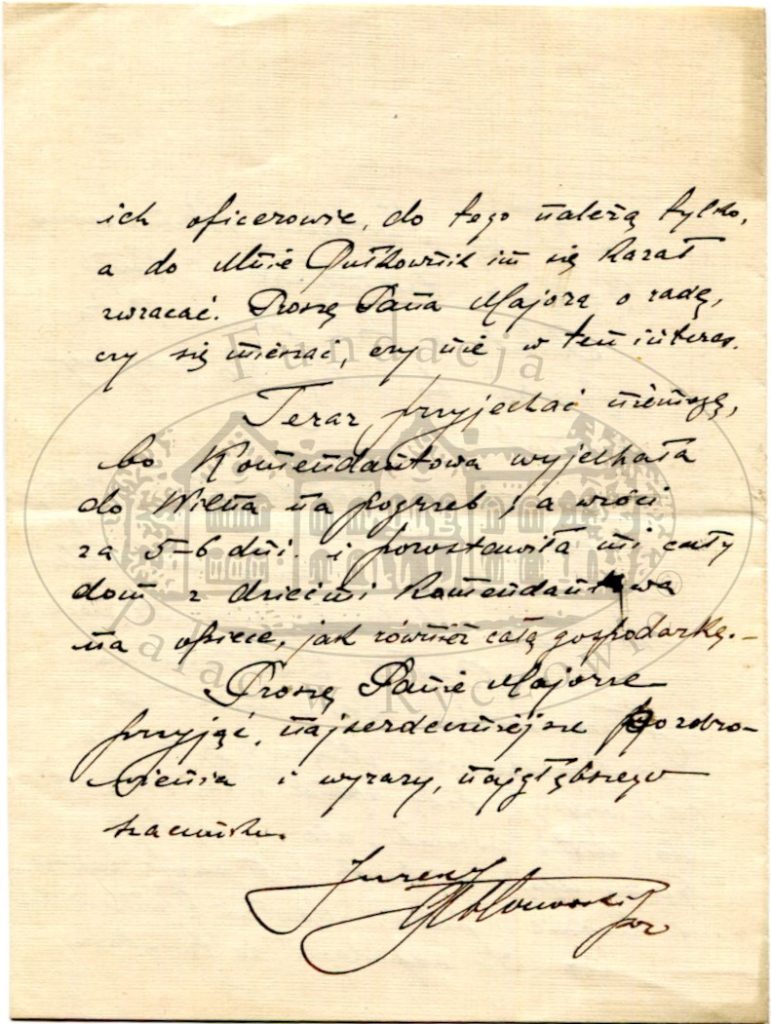 ich oficerowie, do tego należą tylko,
a do Mnie Pułkownik im się kazał
zwracać. Proszę Pana Majora o radę,
czy się mieszać, czy nie w ten interes.
Teraz przyjechać niemogę,
bo Komendantowa wyjechała
do Wilna na pogrzeb, a wróci
za 5-6 dni. i pozostawiła mi cały
dom z dziećmi Komendantowa
na opiece, jak również całą gospodarkę.-
Proszę Panie Majorze
przyjąć, najserdeczniejsze pozdro-
wienia i wyrazy, najgłębszego
szacunku.
Jurek
por
Fundacja
Pałac w Rychnowie